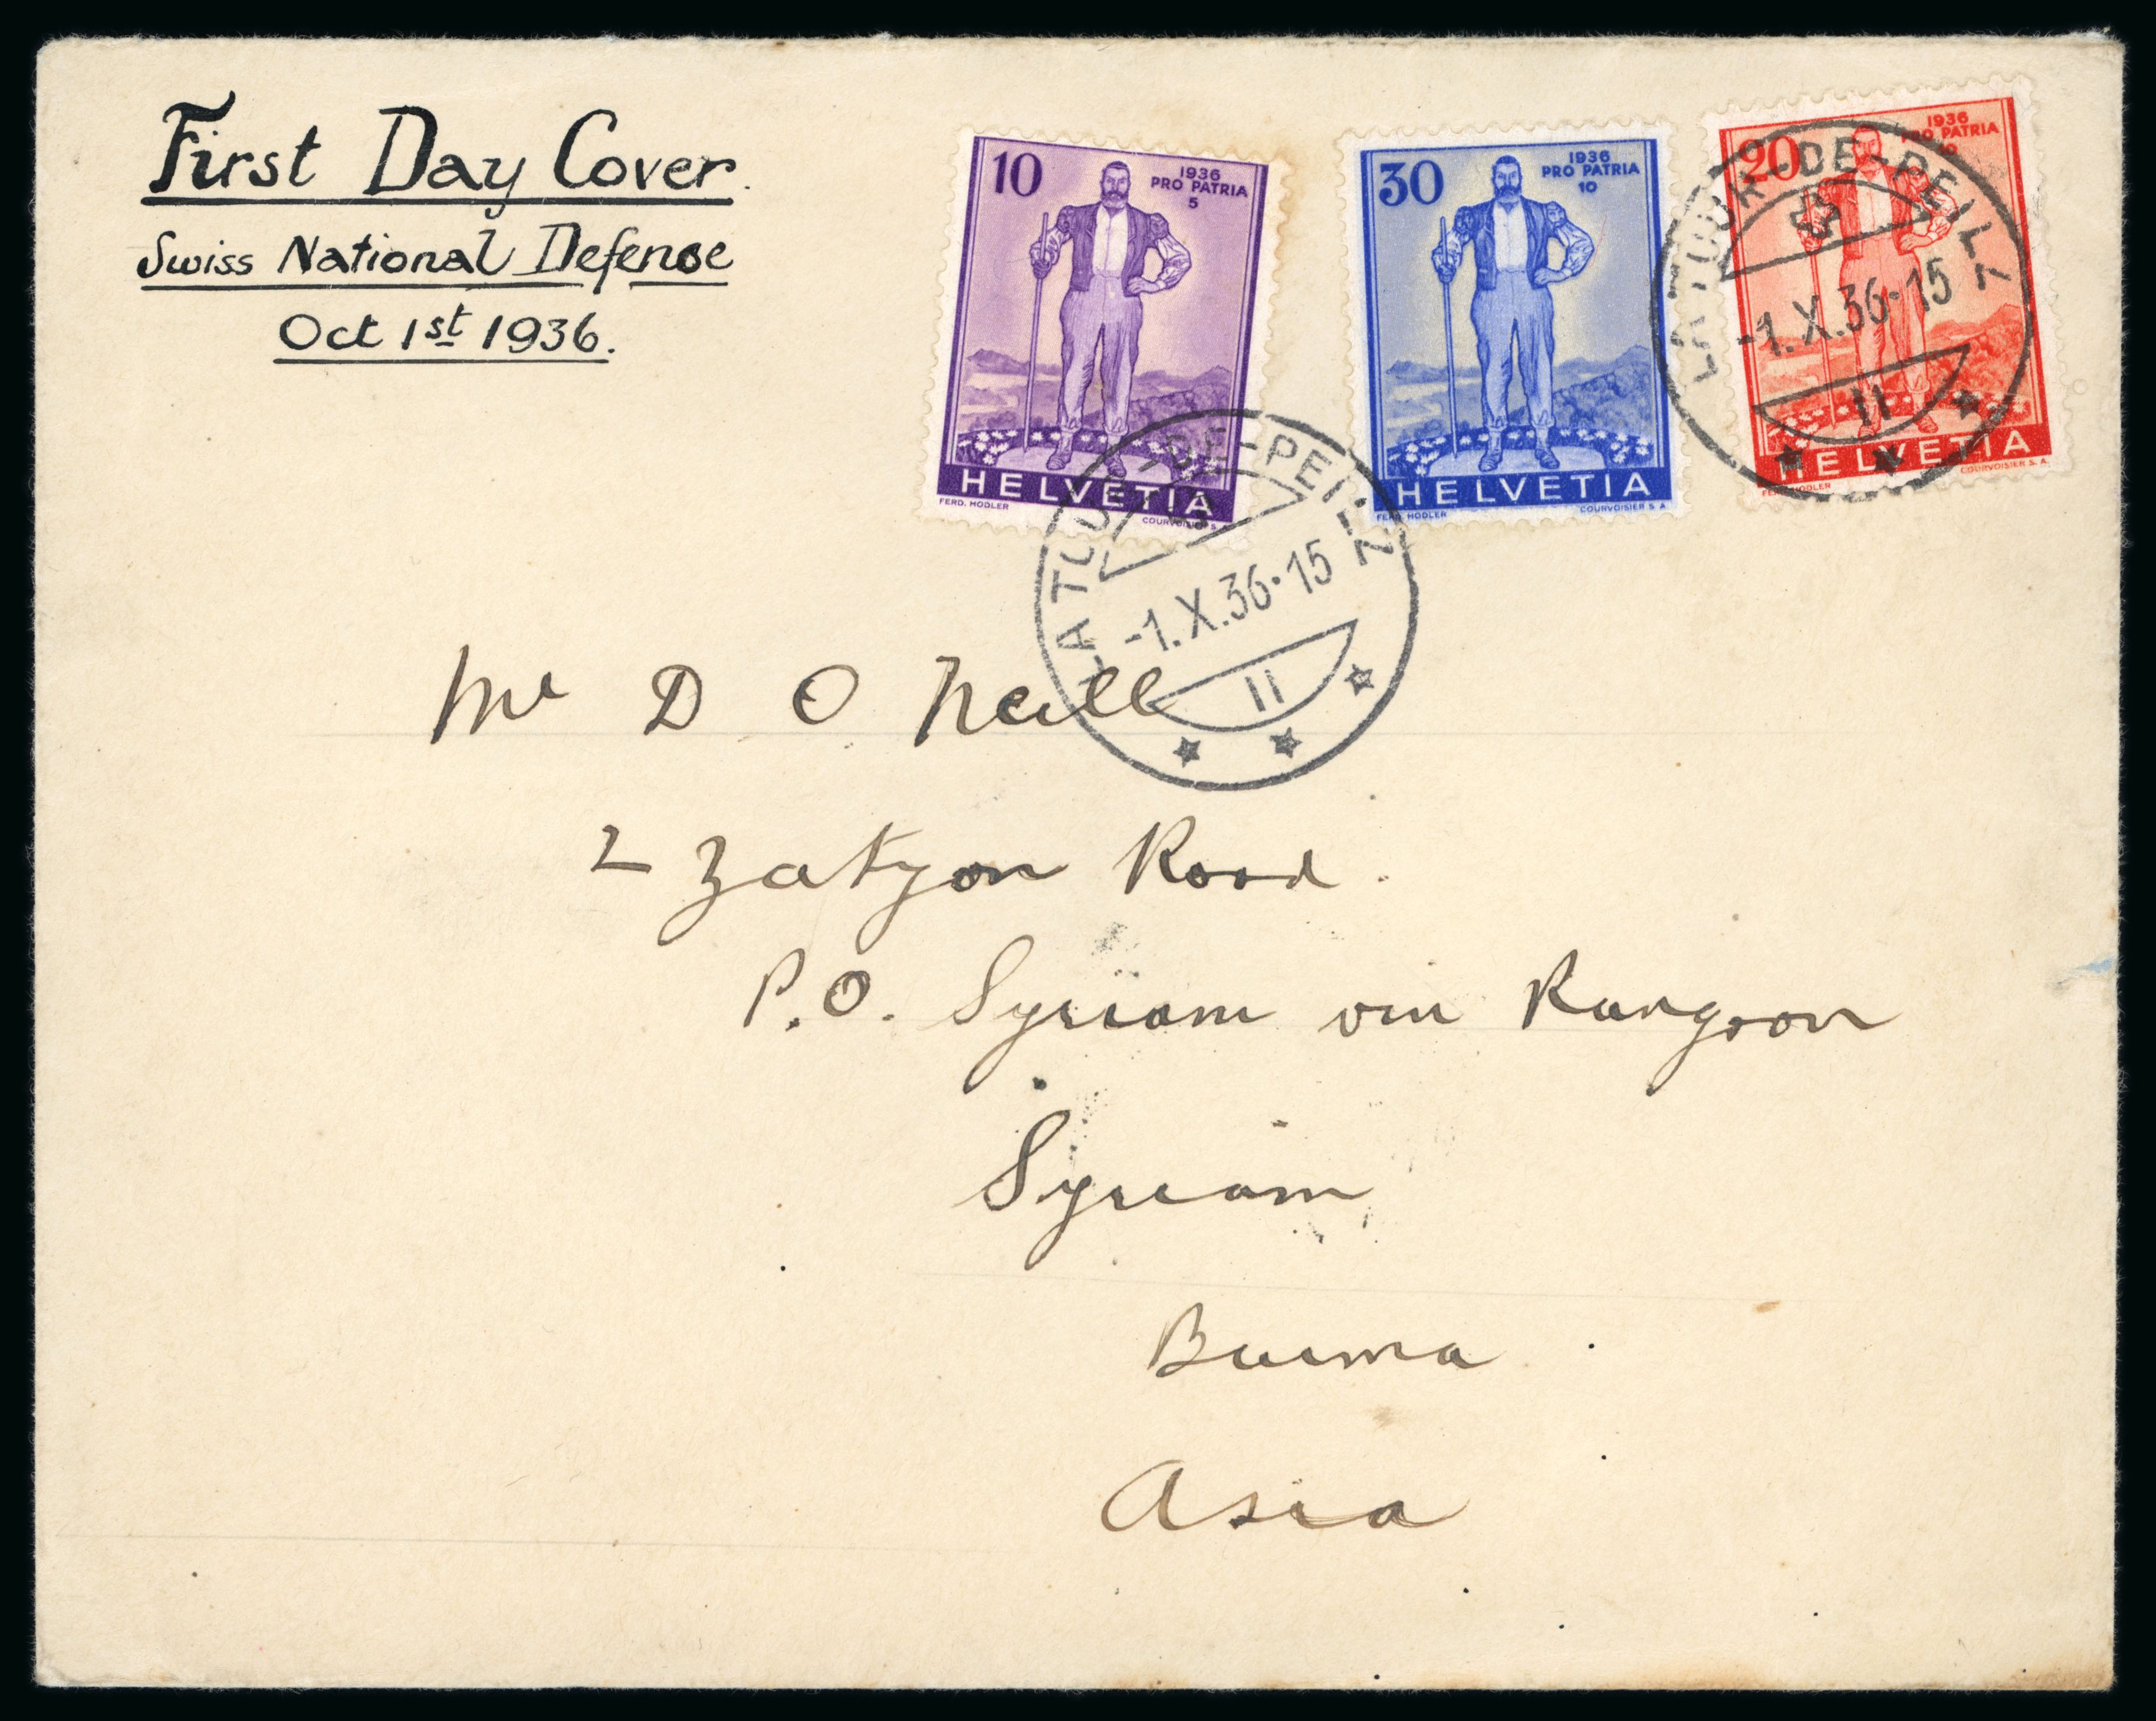 First Day Cover.
Swiss National Defense
Oct 1st 1936.
10
1936
PRO PATRIA
5
HELVETIA
FERD. HODLER COURVOISIER S.
30
1936
PRO PATRIA
10
HELVETIA
FERD. HODLER COURVOISIER S. A.
20
1936
PRO PATRIA
10
HELVETIA
FERD. HODLER COURVOISIER S. A.
LA TOUR-DE-PEILZ
-1.X.36·15
II
LA TOUR-DE-PEILZ
-1.X.36·15
II
Mr D O Neill
2 Zatyon Road.
P.O. Syriam via Rangoon
Syriam
Burma
Asia